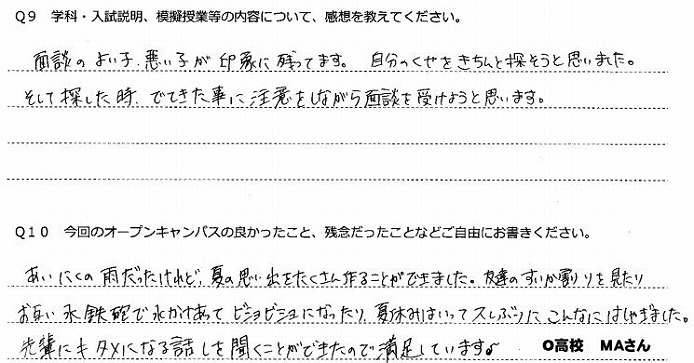 Q9 学科・入試説明、模擬授業等の内容について、感想を教えてください。
面談のよい子、悪い子が印象に残ってます。 自分のくせをきちんと探そうと思いました。
そして探した時、でてきた事に注意をしながら面談を受けようと思います。
Q10 今回のオープンキャンパスの良かったこと、残念だったことなどご自由にお書きください。
あいにくの雨だったけれど、夏の思い出をたくさん作ることができました。友達のすいか割りを見たり
お互い水鉄砲で水かけあってビショビショになったり、夏休みはいってスしぶりにこんなにはしゃぎました。
先輩にもタメになる話しを聞くことができたので満足しています♪
O高校 MAさん